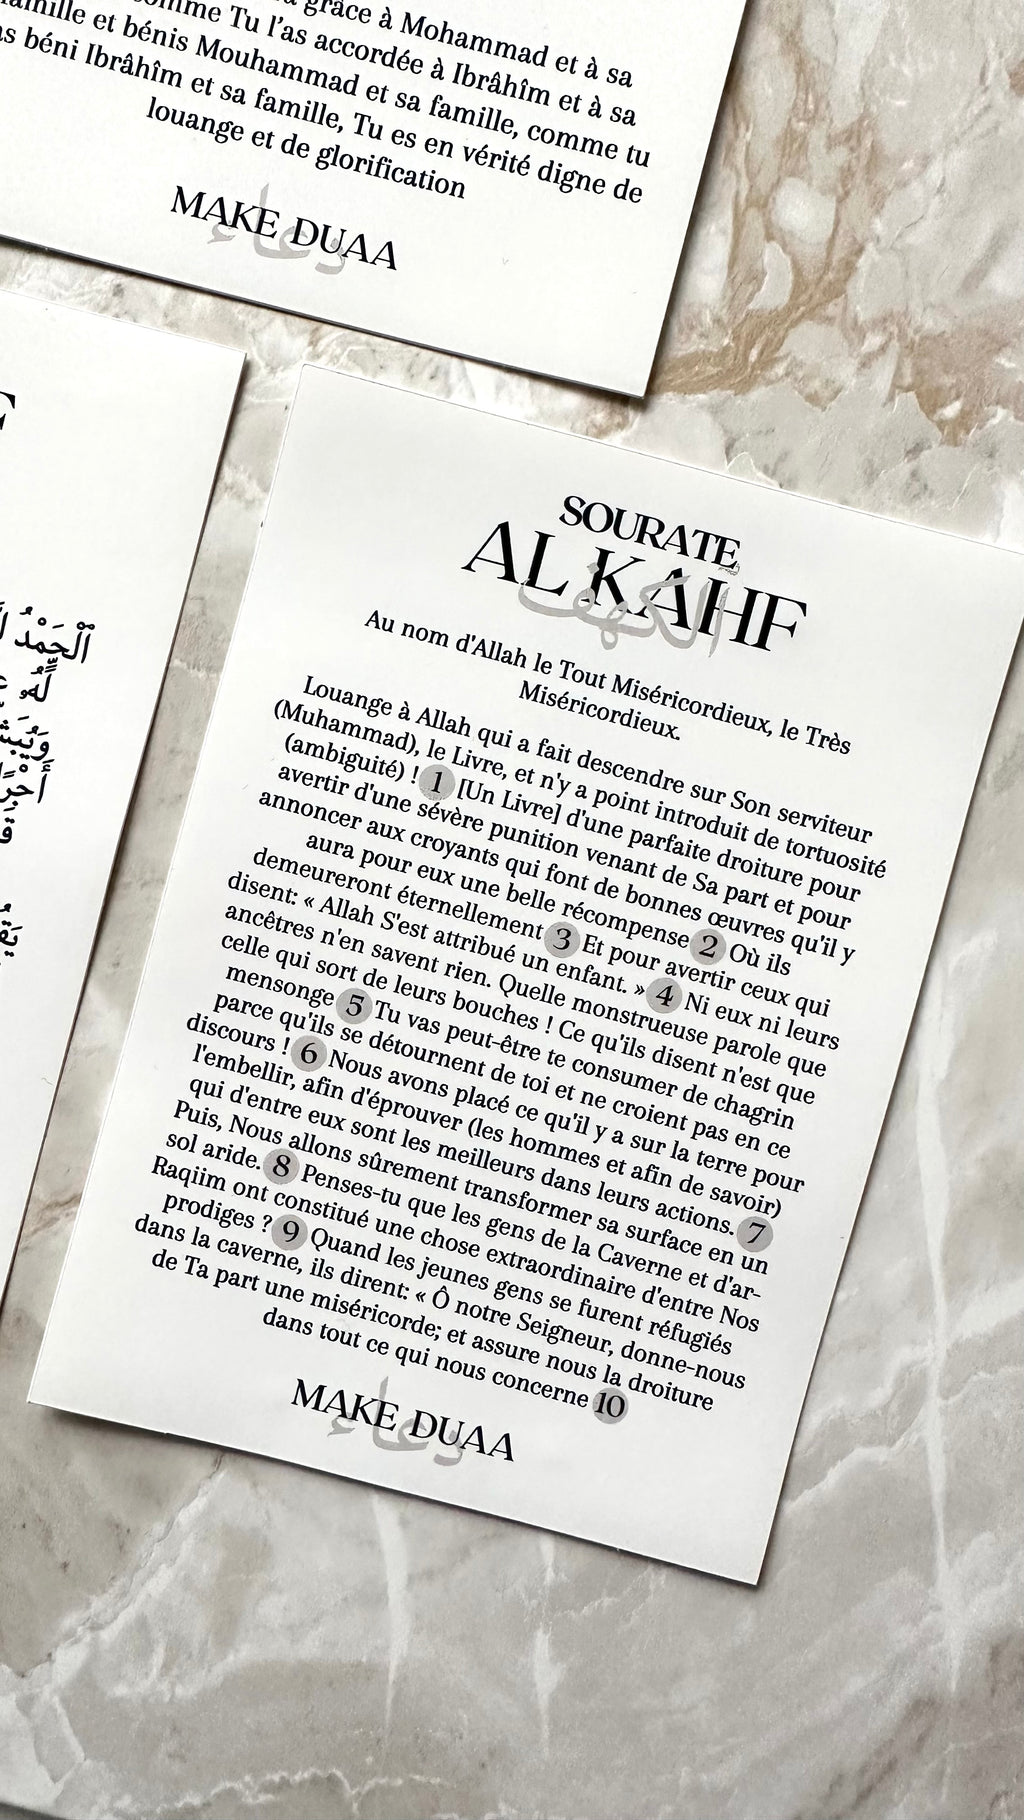 grâce à Mohammad et à sa
comme Tu l'as accordée à Ibrâhîm et à sa
famille et bénis Mouhammad et sa famille, comme tu
as béni Ibrâhîm et sa famille, Tu es en vérité digne de
louange et de glorification
MAKE DUAA
دعاء
ٱلْحَمْدُ
لَّهُۥ
أَجْرًا
SOURATE
AL KAHF
الكهف
Au nom d'Allah le Tout Miséricordieux, le Très
Miséricordieux.
Louange à Allah qui a fait descendre sur Son serviteur
(Muhammad), le Livre, et n'y a point introduit de tortuosité
(ambiguité) ! 1 [Un Livre] d'une parfaite droiture pour
avertir d'une sévère punition venant de Sa part et pour
annoncer aux croyants qui font de bonnes œuvres qu'il y
aura pour eux une belle récompense 2 Où ils
demeureront éternellement 3 Et pour avertir ceux qui
disent: « Allah S'est attribué un enfant. » 4 Ni eux ni leurs
ancêtres n'en savent rien. Quelle monstrueuse parole que
celle qui sort de leurs bouches ! Ce qu'ils disent n'est que
mensonge 5 Tu vas peut-être te consumer de chagrin
parce qu'ils se détournent de toi et ne croient pas en ce
discours ! 6 Nous avons placé ce qu'il y a sur la terre pour
l'embellir, afin d'éprouver (les hommes et afin de savoir)
qui d'entre eux sont les meilleurs dans leurs actions. 7
Puis, Nous allons sûrement transformer sa surface en un
sol aride. 8 Penses-tu que les gens de la Caverne et d'ar-
Raqiim ont constitué une chose extraordinaire d'entre Nos
prodiges ? 9 Quand les jeunes gens se furent réfugiés
dans la caverne, ils dirent: « Ô notre Seigneur, donne-nous
de Ta part une miséricorde; et assure nous la droiture
dans tout ce qui nous concerne 10
MAKE DUAA
دعاء